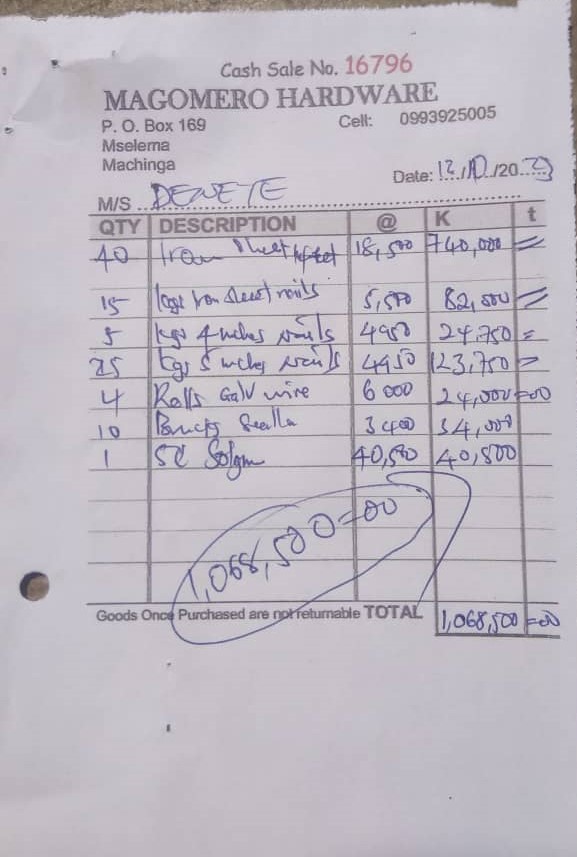 Cash Sale No. 16796
MAGOMERO HARDWARE
P. O. Box 169 Cell: 0993925005
Mselema
Machinga
Date: 12/10/2023
M/S DEWETE
QTY DESCRIPTION @ K t
40 Iron sheet 18,500 740,000 =
15 kgs Iron sheet nails 5,500 82,500 =
5 kgs 4 inches nails 4950 24,750 =
25 kgs 5 inches nails 4950 123,750 =
4 Rolls Galv wire 6000 24,000=00
10 3400 34,000
1 40,500 40,500
1,068,500=00
Goods Once Purchased are not returnable TOTAL 1,068,500=00